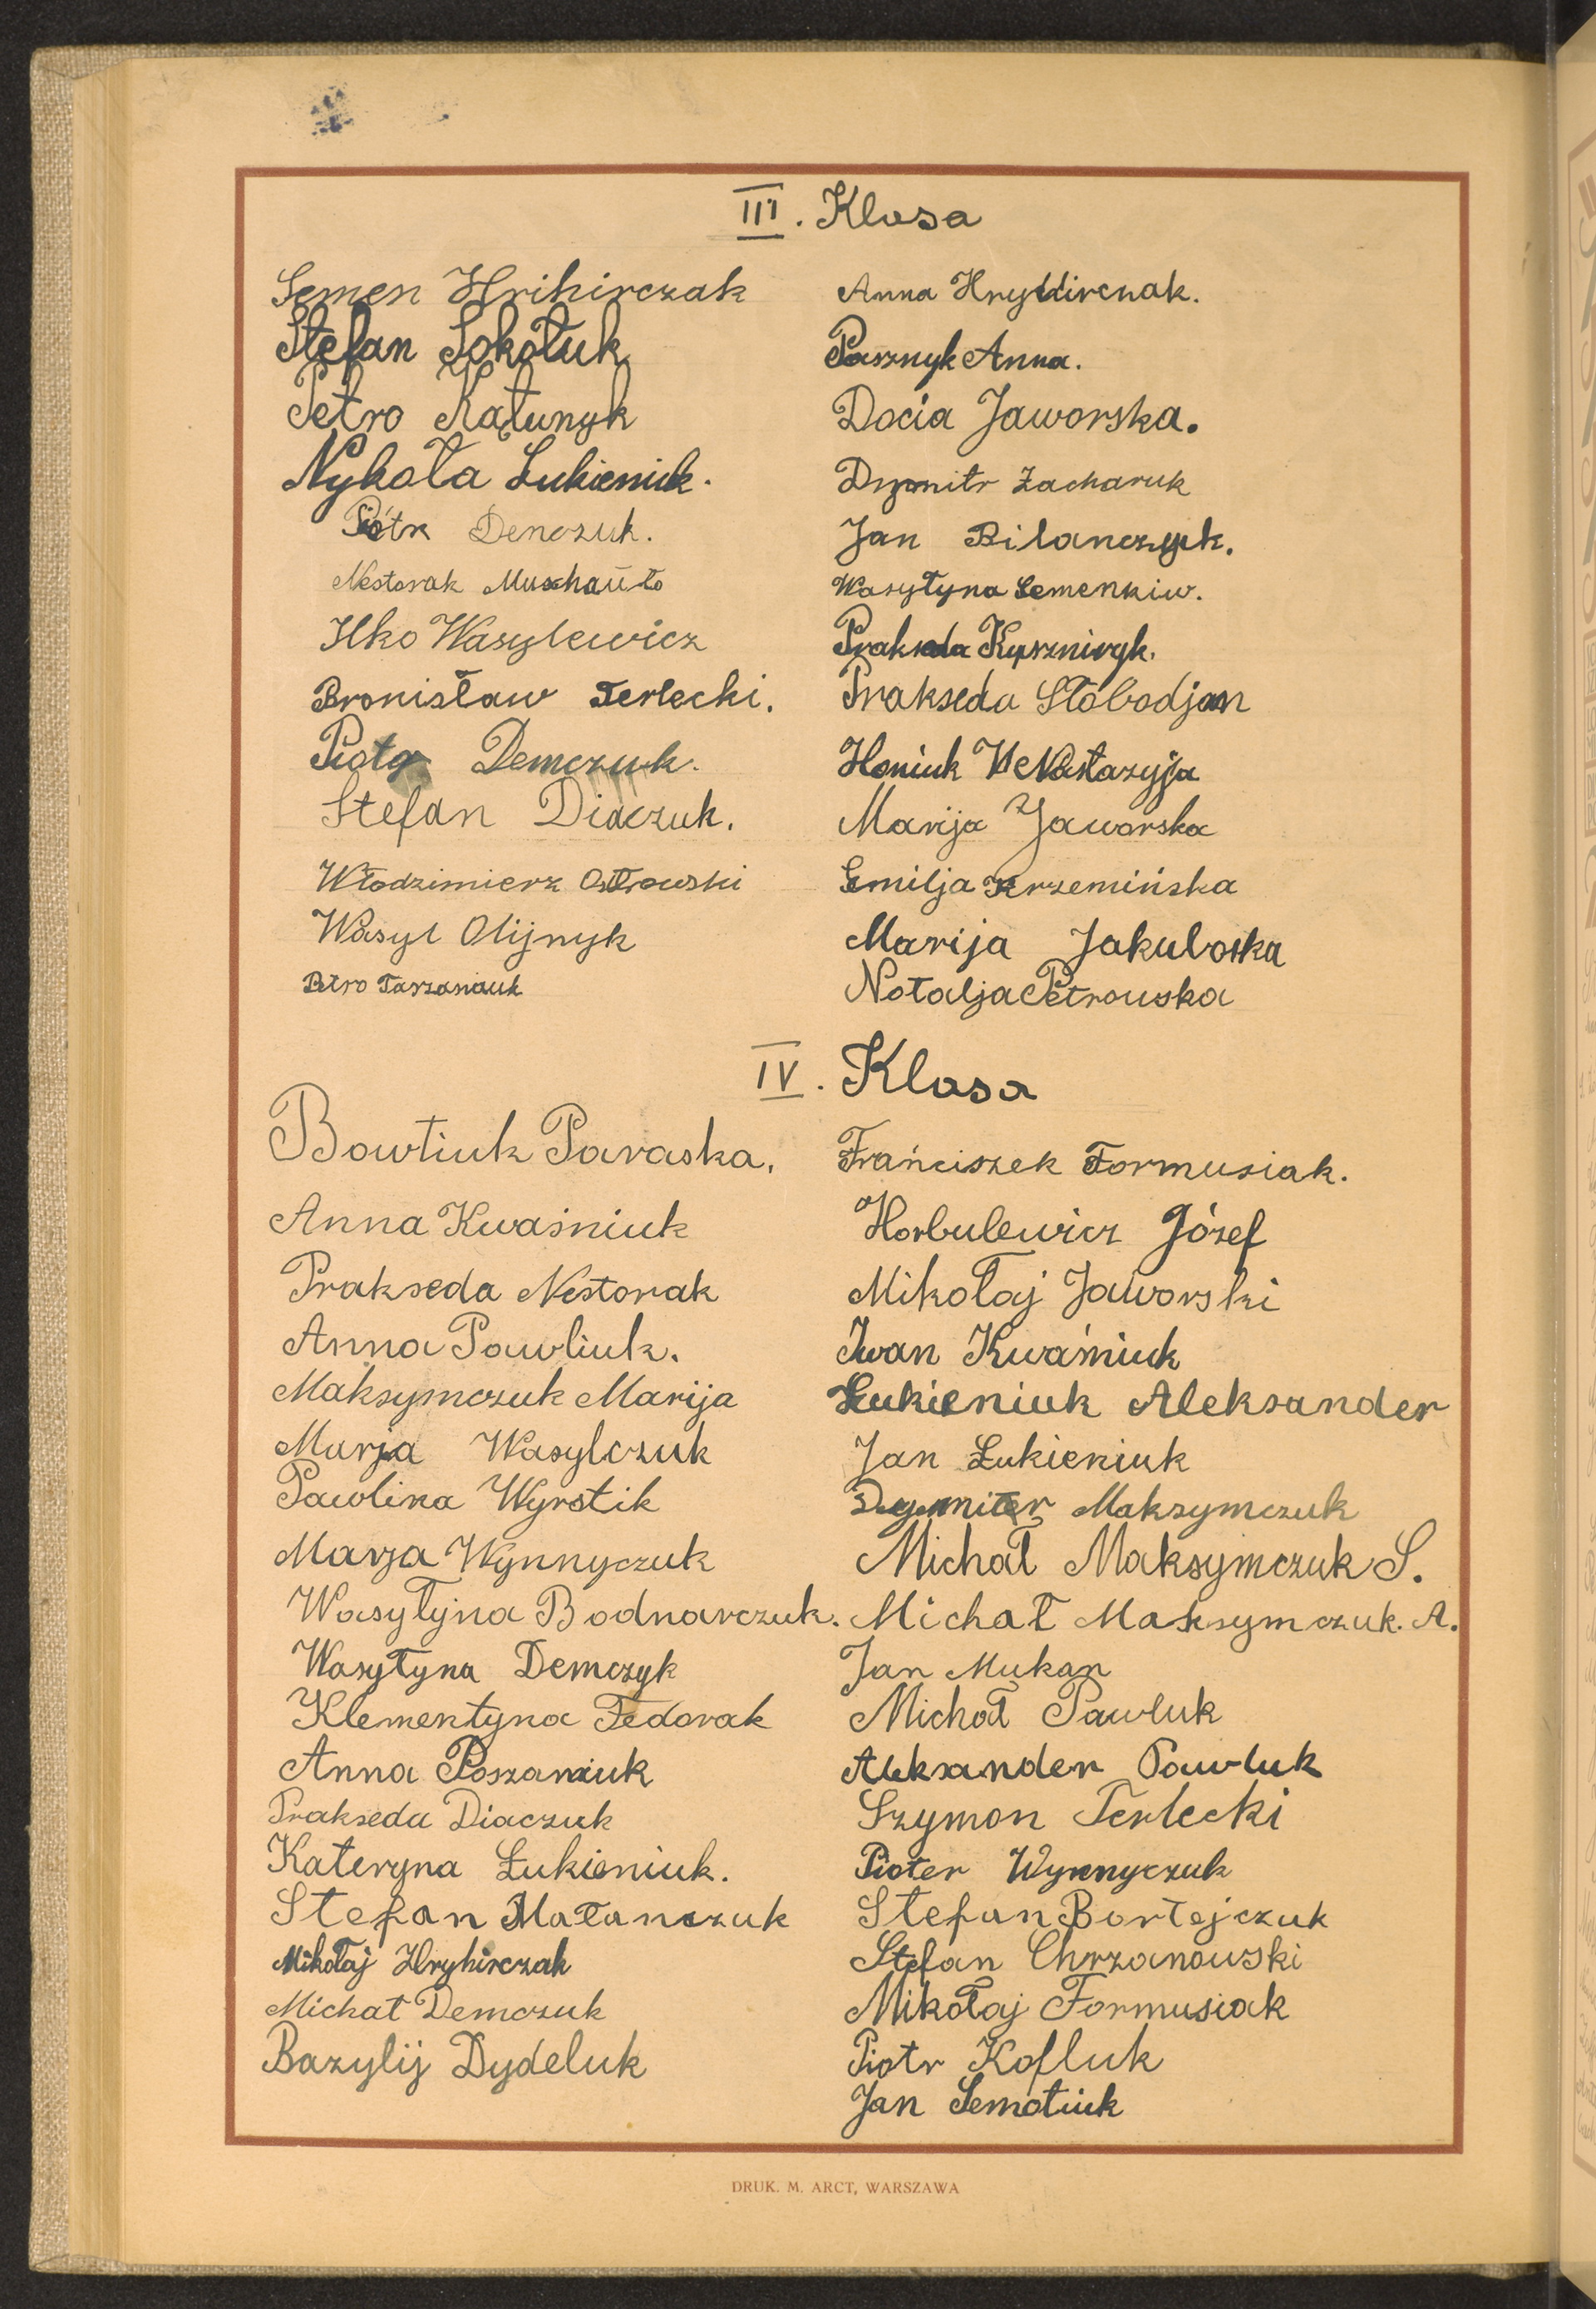 III. Klasa
Semen Hrihirczak
Stefan Sokołuk
Petro Kałunyk
Nykoła Łukieniuk.
Piótr Denczuk.
Nestorak
Ilko Wasylewicz
Bronisław Terlecki.
Piotr Demczuk.
Stefan Diaczuk.
Włodzimierz Ostrowski
Wasyl Olijnyk
Petro Taszaniuk
Anna
Pasznyk Anna.
Docia Jaworska.
Dymitr Zacharuk
Jan Bilanczyk.
Wasyłyna Semenkiw.
Prakseda Kuszniryk.
Prakseda Słobodjan
Honiuk Nastazyja
Marija Jaworska
Emilja Krzemińska
Marija Jakubowska
Notalja Petrowska
IV. Klasa
Bowtiuk Paraska.
Anna Kwaśniuk
Prakseda Nestorak
Anna Pawliuk.
Maksymczuk Marija
Marja Wasylczuk
Pawlina Wyrstik
Marja Wynnyczuk
Wasyłyna Bodnarczuk.
Wasyłyna Demczyk
Klementyna Fedorak
Anna Poszaniuk
Prakseda Diaczuk
Kateryna Łukieniuk.
Stefan Małanczuk
Mikołaj Hryhirczak
Michał Demczuk
Bazylij Dydeluk
Frańciszek Formusiak.
Horbulewicz Józef
Mikołaj Jaworski
Iwan Kwaśniuk
Łukieniuk Aleksander
Jan Łukieniuk
Dymiter Maksymczuk
Michał Maksymczuk S.
Michał Maksymczuk. A.
Jan Mukan
Michał Pawluk
Aleksander Pawluk
Szymon Terlecki
Pioter Wynnyczuk
Stefan Bortejczuk
Stefan Chrzanowski
Mikołaj Formusiak
Piotr Kofluk
Jan Semotiuk
DRUK. M. ARCT, WARSZAWA